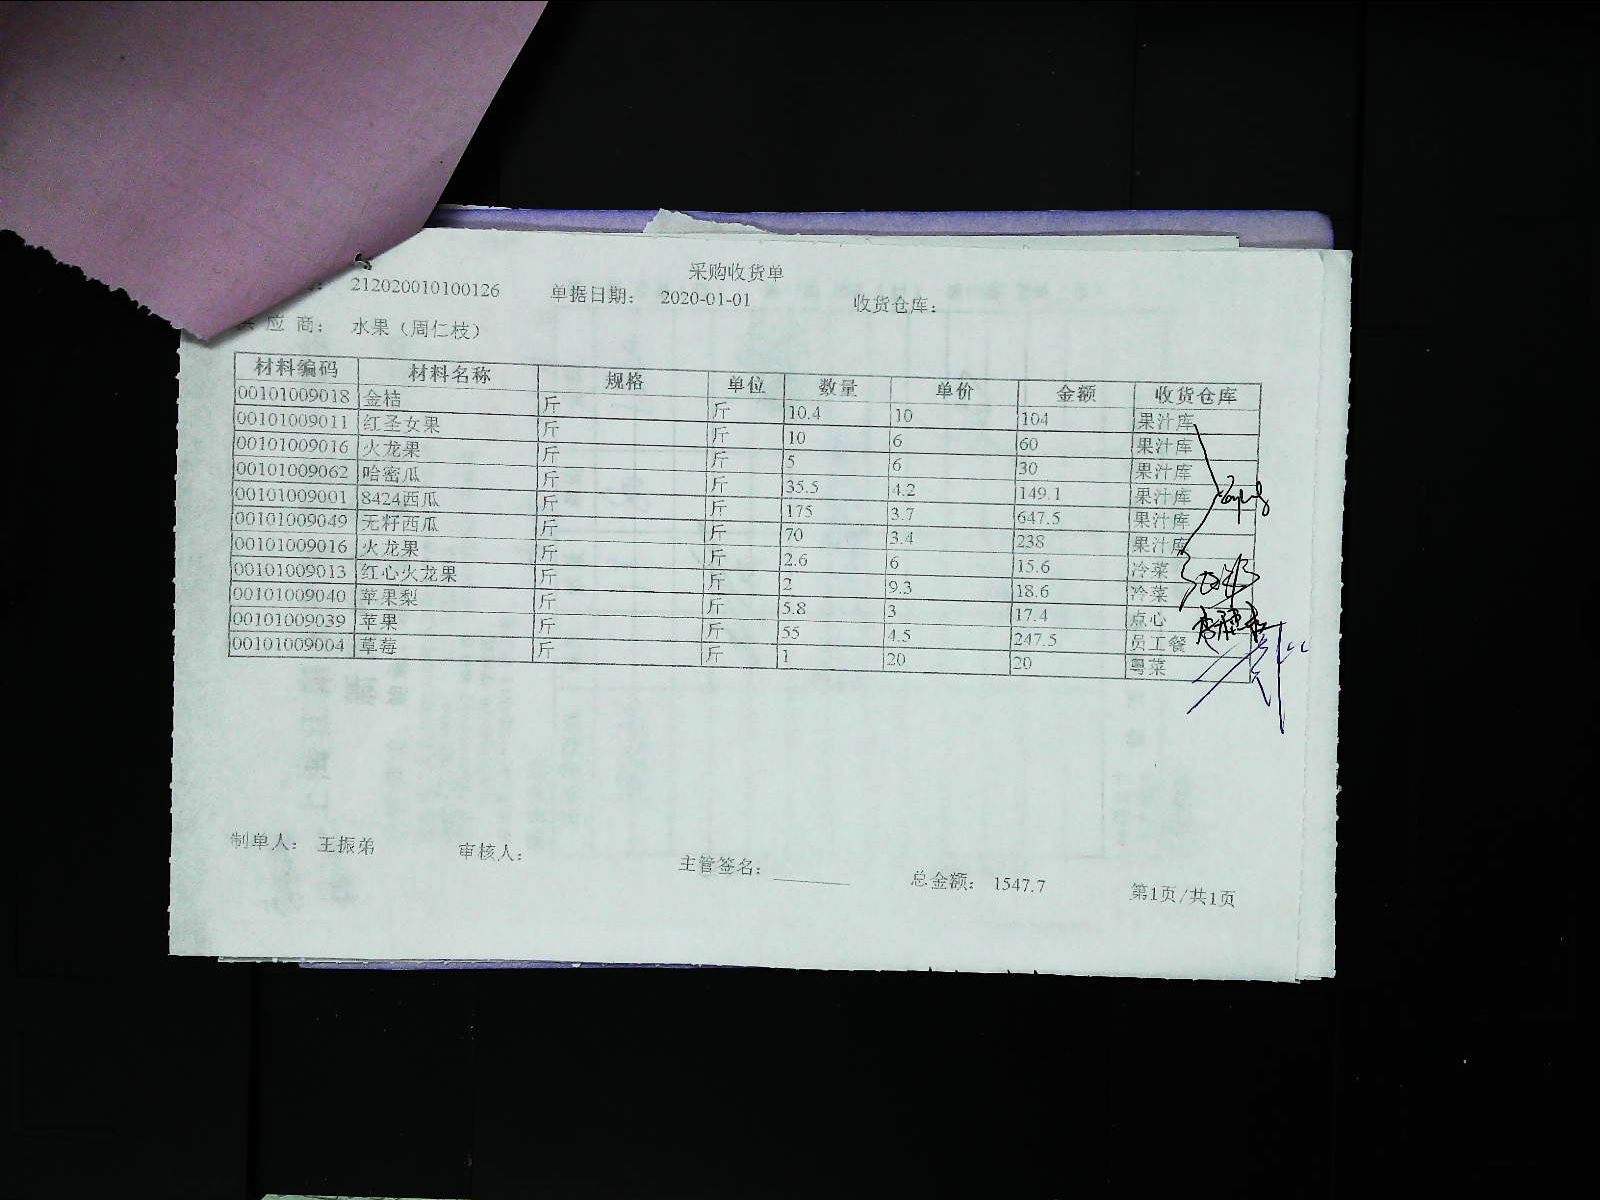 采购收货单
212020010100126 单据日期: 2020-01-01 收货仓库:
应 商: 水果（周仁枝）
材料编码 材料名称 规格 单位 数量 单价 金额 收货仓库
00101009018 金桔 斤 斤 10.4 10 104 果汁库
00101009011 红圣女果 斤 斤 10 6 60 果汁库
00101009016 火龙果 斤 斤 5 6 30 果汁库
00101009062 哈密瓜 斤 斤 35.5 4.2 149.1 果汁库
00101009001 8424西瓜 斤 斤 175 3.7 647.5 果汁库
00101009049 无籽西瓜 斤 斤 70 3.4 238 果汁库
00101009016 火龙果 斤 斤 2.6 6 15.6 冷菜
00101009013 红心火龙果 斤 斤 2 9.3 18.6 冷菜
00101009040 苹果梨 斤 斤 5.8 3 17.4 点心
00101009039 苹果 斤 斤 55 4.5 247.5 员工餐
00101009004 草莓 斤 斤 1 20 20 粤菜
制单人: 王振弟 审核人: 主管签名: 总金额: 1547.7 第1页/共1页